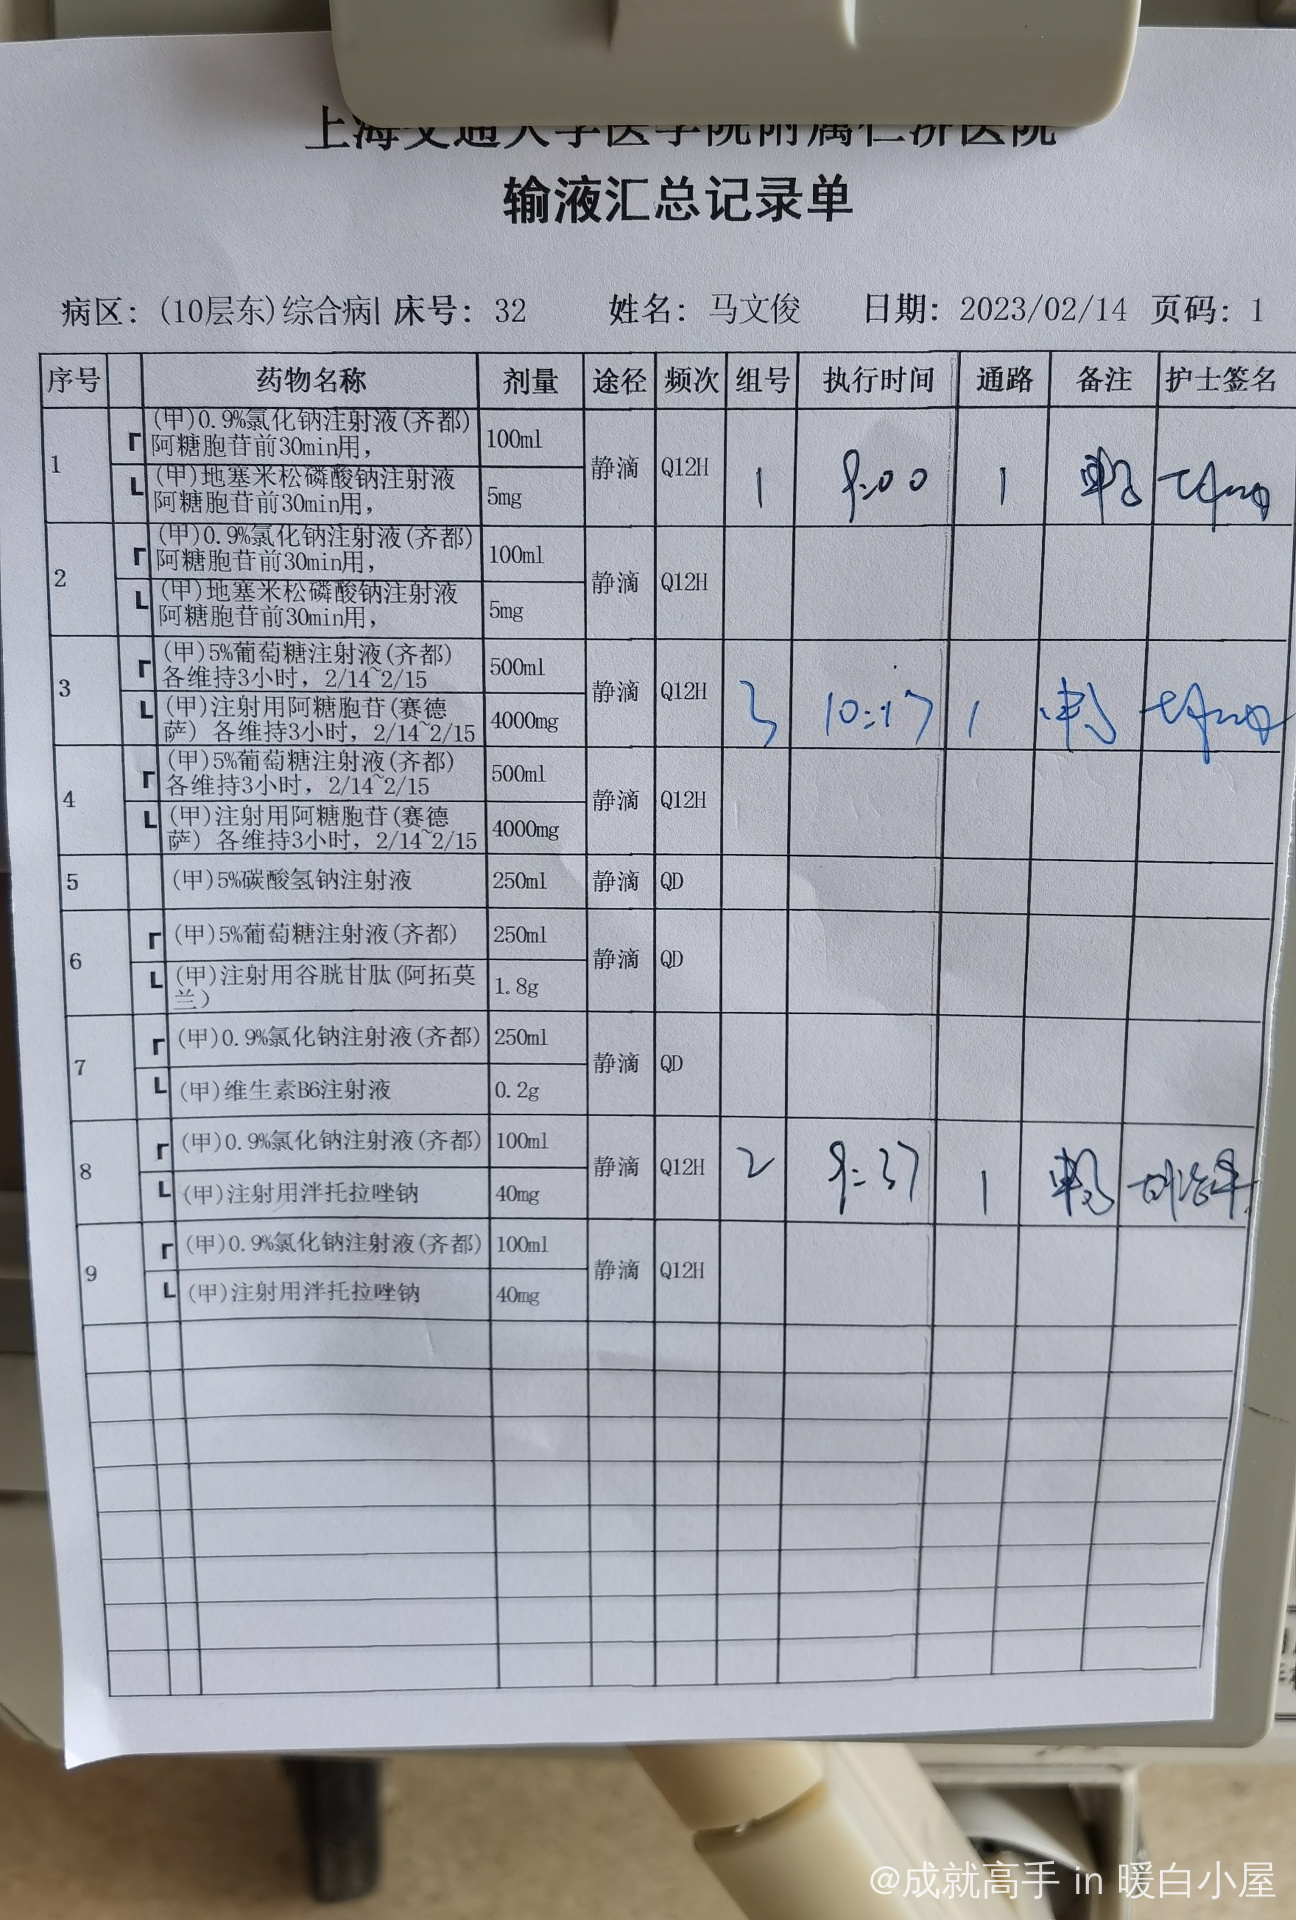 上海交通大学医学院附属仁济医院
输液汇总记录单
病区：(10层东)综合病 床号：32 姓名：马文俊 日期：2023/02/14 页码：1
序号 药物名称 剂量 途径 频次 组号 执行时间 通路 备注 护士签名
1 ┏ (甲)0.9%氯化钠注射液(齐都) 100ml 静滴 Q12H 1 9:00 1
阿糖胞苷前30min用,
┗ (甲)地塞米松磷酸钠注射液 5mg
阿糖胞苷前30min用,
2 ┏ (甲)0.9%氯化钠注射液(齐都) 100ml 静滴 Q12H
阿糖胞苷前30min用,
┗ (甲)地塞米松磷酸钠注射液 5mg
阿糖胞苷前30min用,
3 ┏ (甲)5%葡萄糖注射液(齐都) 500ml 静滴 Q12H 3 10:17 1
各维持3小时，2/14~2/15
┗ (甲)注射用阿糖胞苷(赛德 4000mg
萨) 各维持3小时，2/14~2/15
4 ┏ (甲)5%葡萄糖注射液(齐都) 500ml 静滴 Q12H
各维持3小时，2/14~2/15
┗ (甲)注射用阿糖胞苷(赛德 4000mg
萨) 各维持3小时，2/14~2/15
5 (甲)5%碳酸氢钠注射液 250ml 静滴 QD
6 ┏ (甲)5%葡萄糖注射液(齐都) 250ml 静滴 QD
┗ (甲)注射用谷胱甘肽(阿拓莫 1.8g
兰)
7 ┏ (甲)0.9%氯化钠注射液(齐都) 250ml 静滴 QD
┗ (甲)维生素B6注射液 0.2g
8 ┏ (甲)0.9%氯化钠注射液(齐都) 100ml 静滴 Q12H 2 9:37 1
┗ (甲)注射用泮托拉唑钠 40mg
9 ┏ (甲)0.9%氯化钠注射液(齐都) 100ml 静滴 Q12H
┗ (甲)注射用泮托拉唑钠 40mg
@成就高手 in 暖白小屋